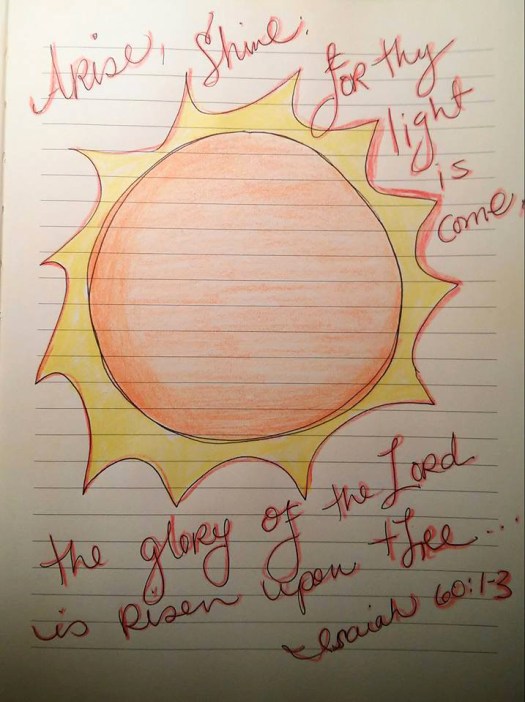 Arise, Shine;
for thy
light
is
come,
the glory of the Lord
is risen upon thee...
~Isaiah 60:1-3